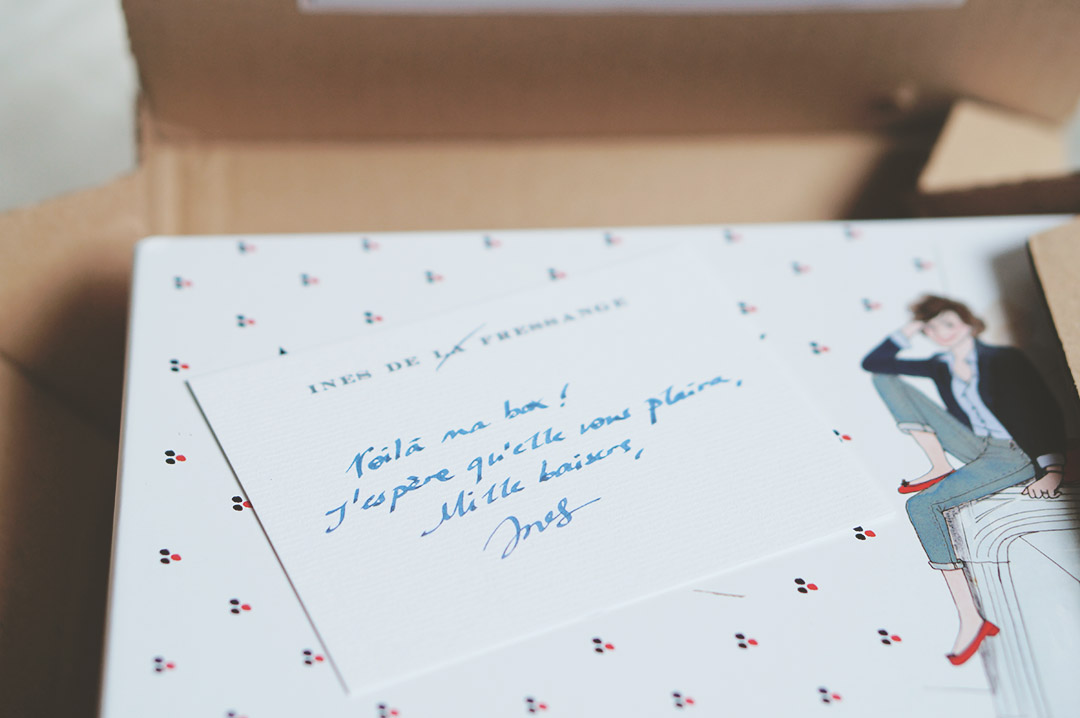 INES DE LA FRESSANGE
Voilà ma box !
J'espère qu'elle vous plaira,
Mille baisers,
Ines